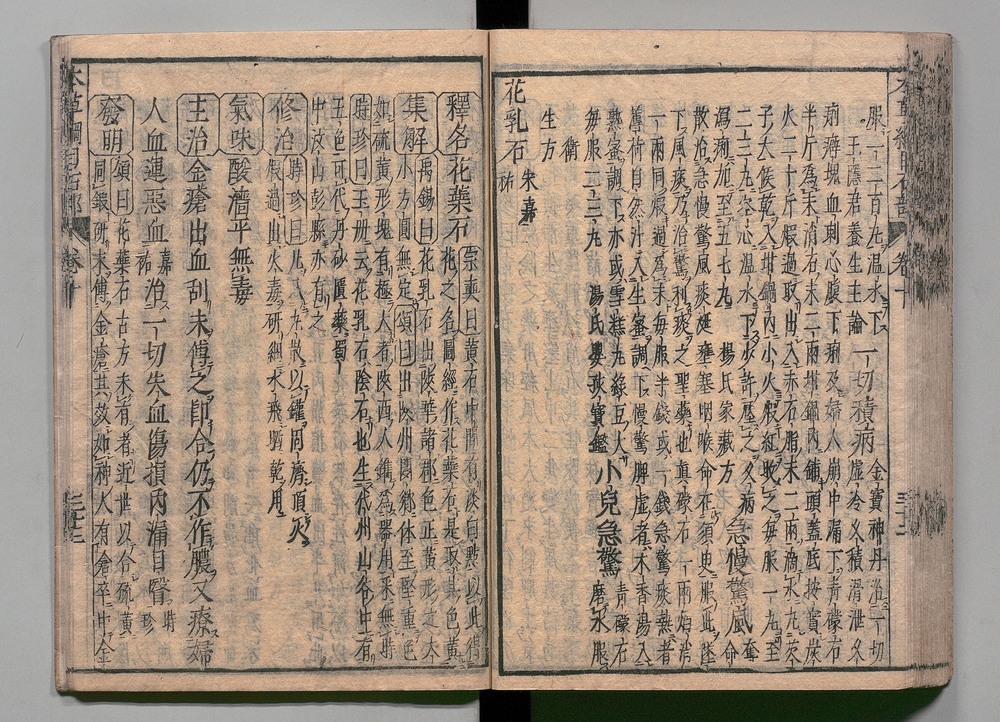 服一二百丸温水下 一切積病 金寶神丹治一切
虛冷久積滑泄久
痢癖塊血刺心腹下痢及婦人崩中漏下青礞石
半斤為末消石末二兩坩鍋內鋪頭蓋底按實炭
火二十斤煅過取出入赤石脂末二兩滴水丸芡
子大候乾入坩鍋內小火煅紅收之每服一丸至
二三丸空心温水下以少許壓之久病
瀉痢加至五七丸 楊氏家藏方 急慢驚風 奪命
散治急慢驚風痰涎壅塞咽喉命在須臾服此墜
下風痰乃治驚利痰之聖藥也真礞石一兩焰消
一兩同煅過為末每服半錢或一錢急驚痰熱者
薄荷自然汁入生蜜調下慢驚脾虛者木香湯入
熟蜜調下亦或雪糕丸綠豆大
每服二三丸 湯氏嬰孩寶鑑 小兒急驚 青礞石
磨水服
生方
花乳石 宋嘉祐
釋名 花蘂石 宗奭曰黃石中間有淡白點以此得
花之名圖經作花蘂石是取其色黃
集解 禹錫曰花乳石出陝華諸郡色正黃形之大
小方圓無定頌曰出陝州閿鄉體至堅重色
如硫黃形塊有極大者陝西人鐫為器用采無時
時珍曰玉册云花乳石陰石也生代州山谷中有
五色可代丹砂匱藥蜀
中汶山彭縣亦有之
修治 時珍曰凡入丸散以罐固濟頂火
煅過出火毒研細水飛曬乾用
氣味 酸濇平無毒
主治 金瘡出血刮末傅之即合仍不作膿又療婦
人血運惡血 嘉祐 治一切失血傷損內漏目瞖 時珍
發明 頌曰花蘂石古方未有者近世以合硫黃
同煅研末傅金瘡其效如神人有倉卒中金